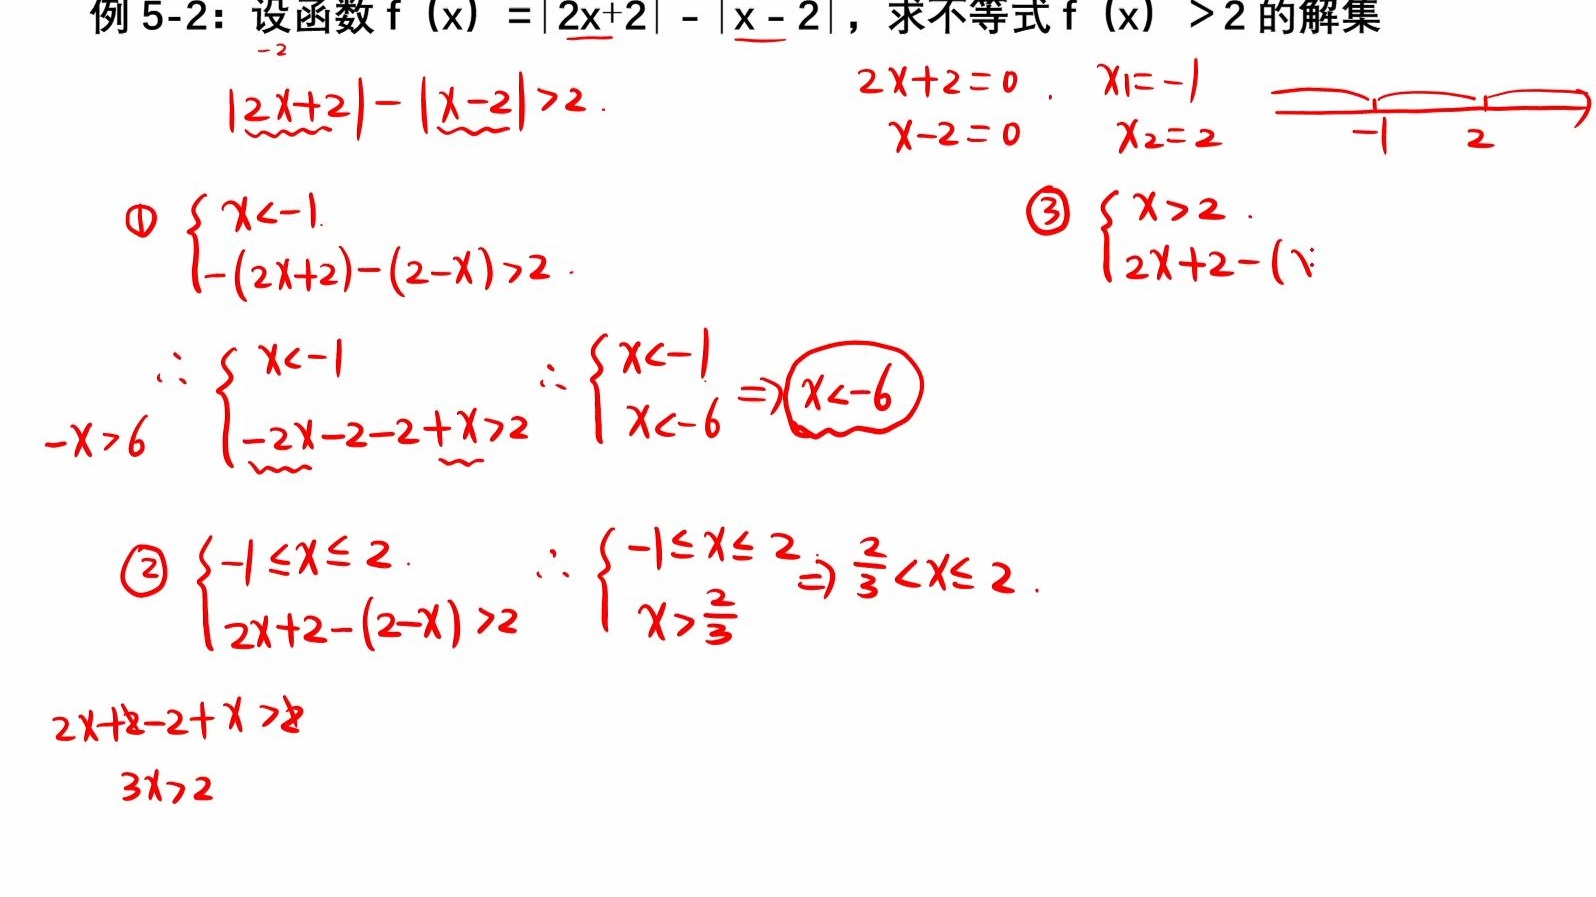 例 5-2：设函数 f（x）=|2x+2| - |x - 2|，求不等式 f（x）>2 的解集
-2
|2x+2|-|x-2|>2.
2x+2=0. x1=-1
x-2=0 x2=2
-1 2
① { x<-1.
-(2x+2)-(2-x)>2.
∴ { x<-1
-2x-2-2+x>2
∴ { x<-1
x<-6
⇒ x<-6
-x>6
② { -1≤x≤2.
2x+2-(2-x)>2
∴ { -1≤x≤2.
x>2/3
⇒ 2/3<x≤2.
2x+2-2+x>2
3x>2
③ { x>2.
2x+2-(